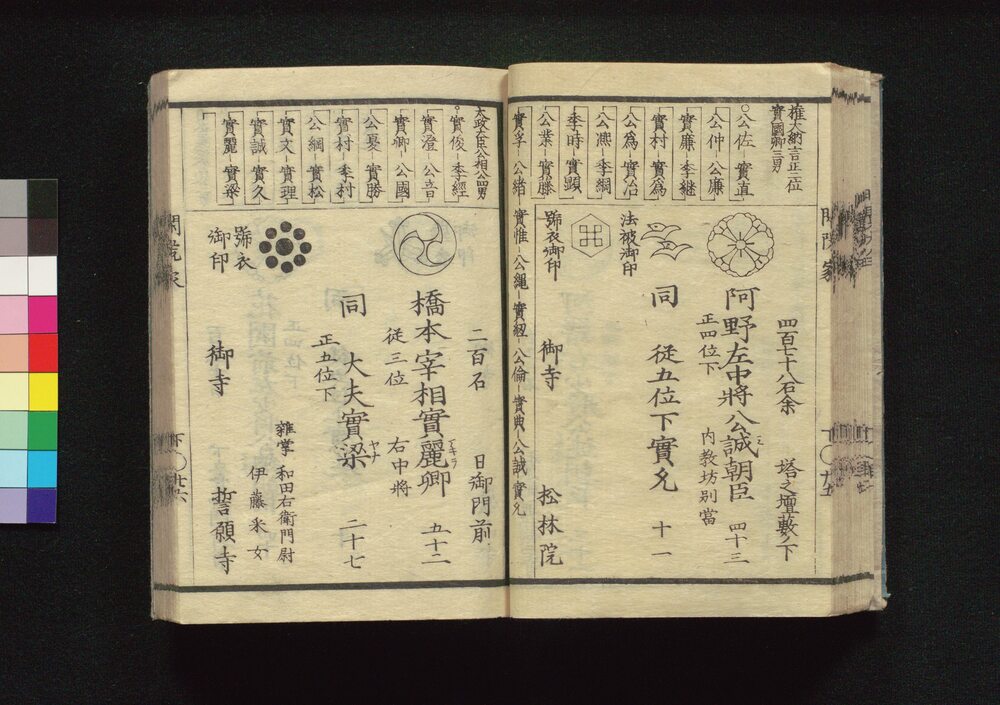 權大納言正二位
實國卿三男
公佐 實直
公仲 公廉
實廉 季繼
實村 實爲
公爲 實治
公凞 季綱
季時 實顯
公業 實藤
實字 公緒 實惟 公繩 實紐 公倫 實典 公誠 實允
四百七十八石余 塔之壇藪ノ下
阿野左中將公誠朝臣 四十三
正四位下 内教坊別當
同 從五位下實允 十一
法被御印
號衣御印
御寺 松林院
閑院家
太政大臣公相公四男
實俊 季經
實澄 公音
實卿 公國
公夏 實勝
實村 季村
公綱 實松
實文 實理
實誠 實久
實麗 實梁
二百石 日御門前
橋本宰相實麗卿 五十二
從三位 右中將
同 大夫實梁 二十七
ヤナ
正五位下
雜掌 和田右衛門尉
伊藤釆女
號衣
御印
御寺 誓願寺